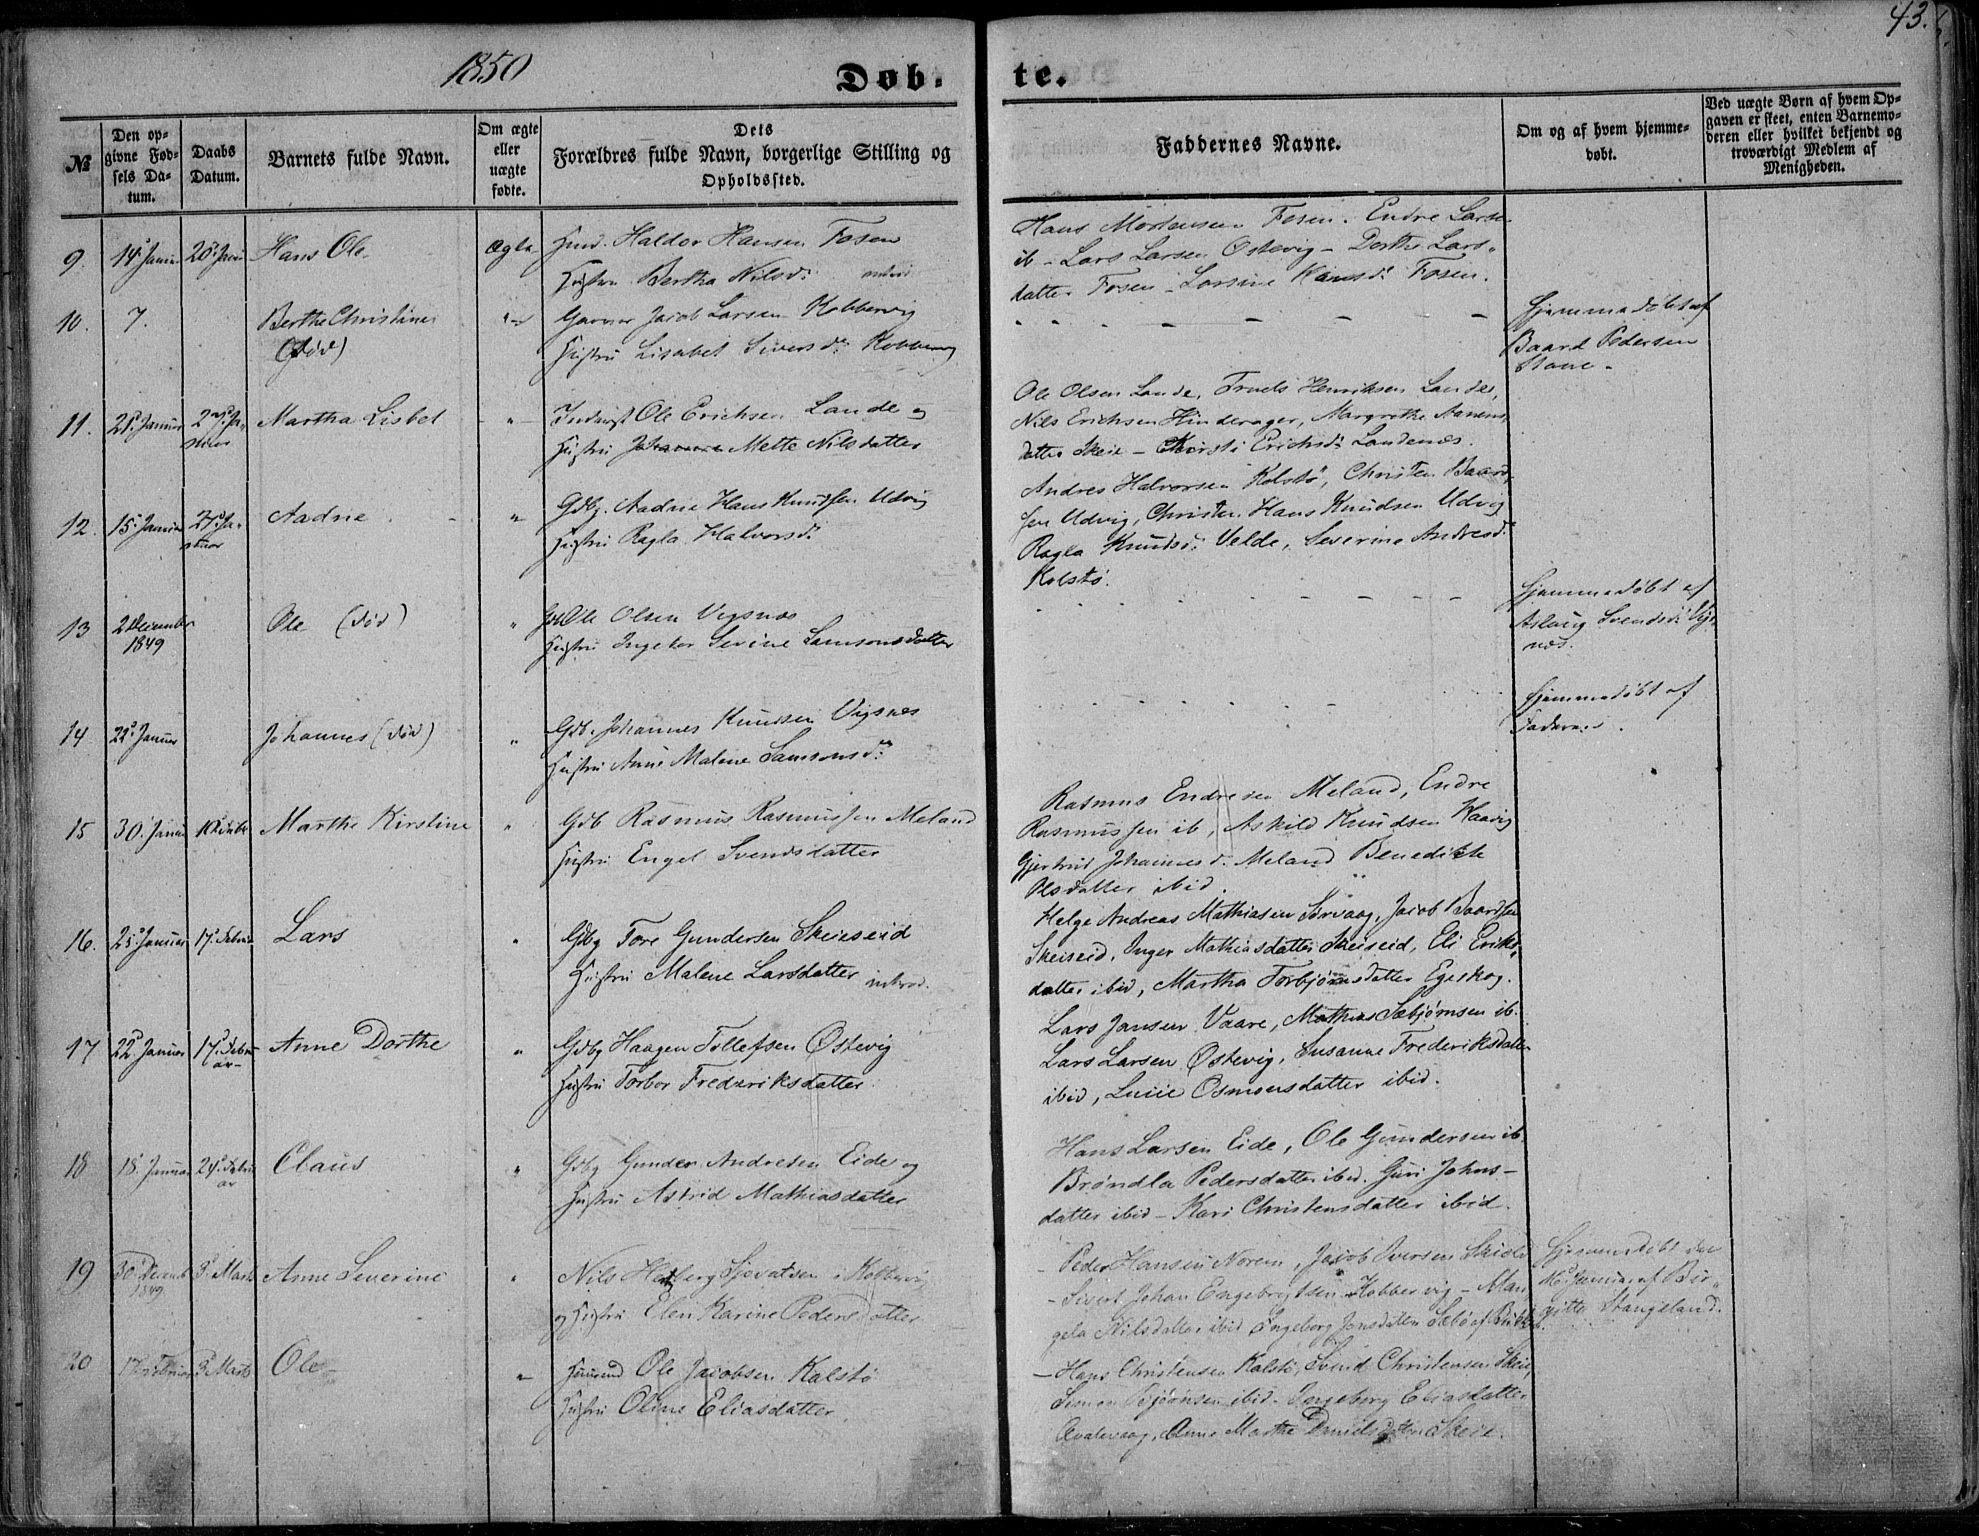 43.
1850
Døb.
te.
№
Den op-
givne Fød-
sels Da-
tum.
Daabs
Datum.
Barnets fulde Navn.
Om ægte
eller
uægte
fødte.
Dets
Forældres fulde Navn, borgerlige Stilling og
Opholdssted.
Faddernes Navne.
Om og af hvem hjemme-
døbt.
Ved uægte Børn af hvem Op-
gaven er skeet, enten Barnemo-
deren eller hvilket bekjendt og
troværdigt Medlem af
Menigheden.
9. 14 Januar 20 Januar Hans Ole Ægte Haldor Hansen Fosen
Hustru Bertha Nilsd:
Hans Mortensen Fosen. Endre Larsen
ib - Lars Larsen Østevig - Dorthe Lars-
datter Fosen - Larsine Hansd: Fosen.
10. 7. Berthe Christine
(død)
Jacob Larsen Kobbervig
Hustru Lisabet Siversd: Kobbervig
Hjemmedøbt af
Baard Pedersen
Stane.
11. 21 Januar 27 Ja-
nuar Martha Lisbet
Ole Erichsen Lande og
Hustru Mette Nilsdatter
Ole Olsen Lande, Truels Henriksen Lande,
Nils Erichsen Hinderager, Margrethe Aanens-
datter Skeie - Kirsti Erichsd: Landenes.
12. 15 Januar 27 Ja-
nuar Aadne
Gdbg. Aadne Hans Knudsen Udvig
Hustru Ragla Halvorsd:
Andres Halvorsen Kolstø, Christen Baard-
sen Udvig, Christen Hans Knudsen Udvig
Ragla Knudsd: Velde, Severine Andresd:
Kolstø.
13 2 December
1849 Ole (død)
Ole Olsen Vigsnæs
Hustru Ingebor Sevine Samsonsdatter
Hjemmedøbt af
Aslaug Svendsd: Vigs-
næs.
14 22 Januar Johannes (død)
Gdb. Johannes Knudsen Vigsnes
Hustru Anne Malene Samsonsd:
Hjemmedøbt af
Faderen.
15 30 Januar Marthe Kirstine
Gdb Rasmus Rasmussen Meland
Hustru Engel Svendsdatter
Rasmus Endresen Meland, Endre
Rasmussen ib, Askild Knudsen Haavig
Gjertrud Johannesd: Meland Benedikte
Olsdatter ibid.
16. 25 Januar 17 Febru Lars
Gdbg Tore Gundersen Skeiseid
Hustru Malene Larsdatter introd.
Helge Andreas Mathiasen Sørvaag, Jacob Baardsen
Skeiseid, Inger Mathiasdatter Skeiseid, Eli Eriks-
datter ibid, Martha Torbjørnsdatter Egeskog.
17 22 Januar 17 Febru
ar Anne Dorthe
Gdbg Haagen Tollefsen Østevig
Hustru Torbor Frederiksdatter
Lars Jansen Vaare, Mathias Sæbjørnsen ib.
Lars Larsen Østevig, Susanne Frederiksdatter
ibid, Lucie Osmonsdatter ibid.
18 18 Januar 24 Febru
ar Claus
Gdbg Gunder Andresen Eide og
Hustru Astrid Mathiasdatter
Hans Larsen Eide, Ole Gundersen ib
Brøndla Pedersdatter ibid. Guri Johns-
datter ibid - Kari Christensdatter ibid.
19 30 Decemb
1849 3 Marts Anne Severine
Nils Hetberg Sjovatsen Kobbervig
og Hustru Elen Karine Pedersdatter
Peder Hansen Norem, Jacob Iversen
Sivert Johan Engebrigtsen Kobbervig - Man-
gela Nilsdatter ibid Ingeborg Jonsdatter Sæbø af
Hjemmedøbt den
16 Januar af Bir-
gitte Stangeland.
20 17 Februar 3 Marts Ole
Ole Jacobsen Kalstø
Hustru Oline Eliasdatter
Hans Christensen Kalstø, Svend Christensen Skeie,
Simon Bjørnsen ibid. Ingeborg Eliasdatter
Qvalevaag, Anne Marthe Danielsdatter Skeie.